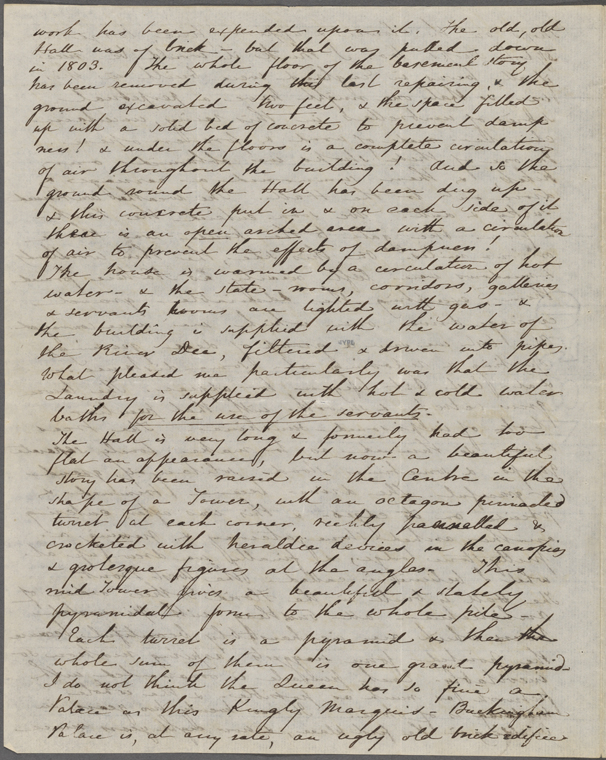 work has been expended upon it. The old, old
Hall was of brick - but that was pulled down
in 1803. The whole floor of the basement story,
has been removed during this last repairing, & the
ground excavated two feet, & the space filled
up with a solid bed of concrete to prevent damp
ness! & under the floors is a complete circulation
of air throughout the building! And so the
ground round the Hall has been dug up -
& this concrete put in & on each side of it
there is an open arched area with a circulation
of air to prevent the effects of dampness!
The house is warmed by a circulation of hot
water - & the state-rooms, corridors, galleries
& servants rooms are lighted with gas - &
the building is supplied with the water of
the River Dee, filtered & driven into pipes.
What pleased me particularly was that the
Laundry is supplied with hot & cold water
baths for the use of the servants -
The Hall is very long & formerly had too
flat an appearance, but now a beautiful
story has been raised in the Centre in the
shape of a Tower, with an octagon pinnacled
turret at each corner, richly pannelled &
crocketed with heraldic devices in the canopies
& grotesque figures at the angles - This
mid Tower gives a beautiful & stately
pyramidal form to the whole pile -
Each turret is a pyramid & then the
whole sum of them is one grand pyramid -
I do not think the Queen has so fine a
Palace as this Kingly Marquis - Buckingham
Palace is, at any rate, an ugly old brick edifice